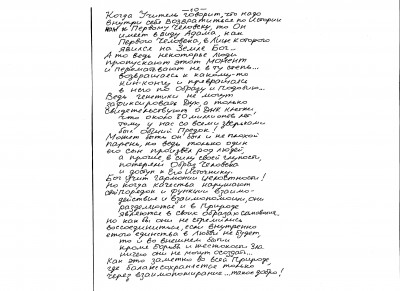 -10-
Когда Учитель говорит, что надо
внутри себя возвратиться по Истории
к Первому Человеку, то Он
имеет в виду Адама, как
Первого Человека, в Лице которого
явился на Земле Бог...
А то ведь некоторые люди
пропускают этот момент
и перематывают не в ту степь...
возвращаясь к какому-то
и превращаясь
в него по Образу и Подобию...
Ведь генетики не могут
зафиксировать Дух, а только
свидетельствуют о ДНК клетки,
что около 80 миллионов лет
тому у нас со всеми зверьками
был общий Предок!
Может быть он был и не плохой
парень, но ведь только один
его сын произвёл род людей,
а прочие в силу своей глупости,
потеряли Образ Человека
и доступ к Его Источнику.
Бог Учит гармонии целостности!
Но когда качества нарушают
порядок и функции взаимо-
действия и взаимопомощи, они
разделяются и в Природе
являются в своих образах
Но как бы они не стремились
воссоединиться, если внутренне
этого единства в Любви не будет,
то и во внешнем быти
кроме борьбы и жестокости зла
ничего они не могут создать...
Как это заметно во всей Природе,
где баланс сохраняется только
через взаимопожирание... такое добро!